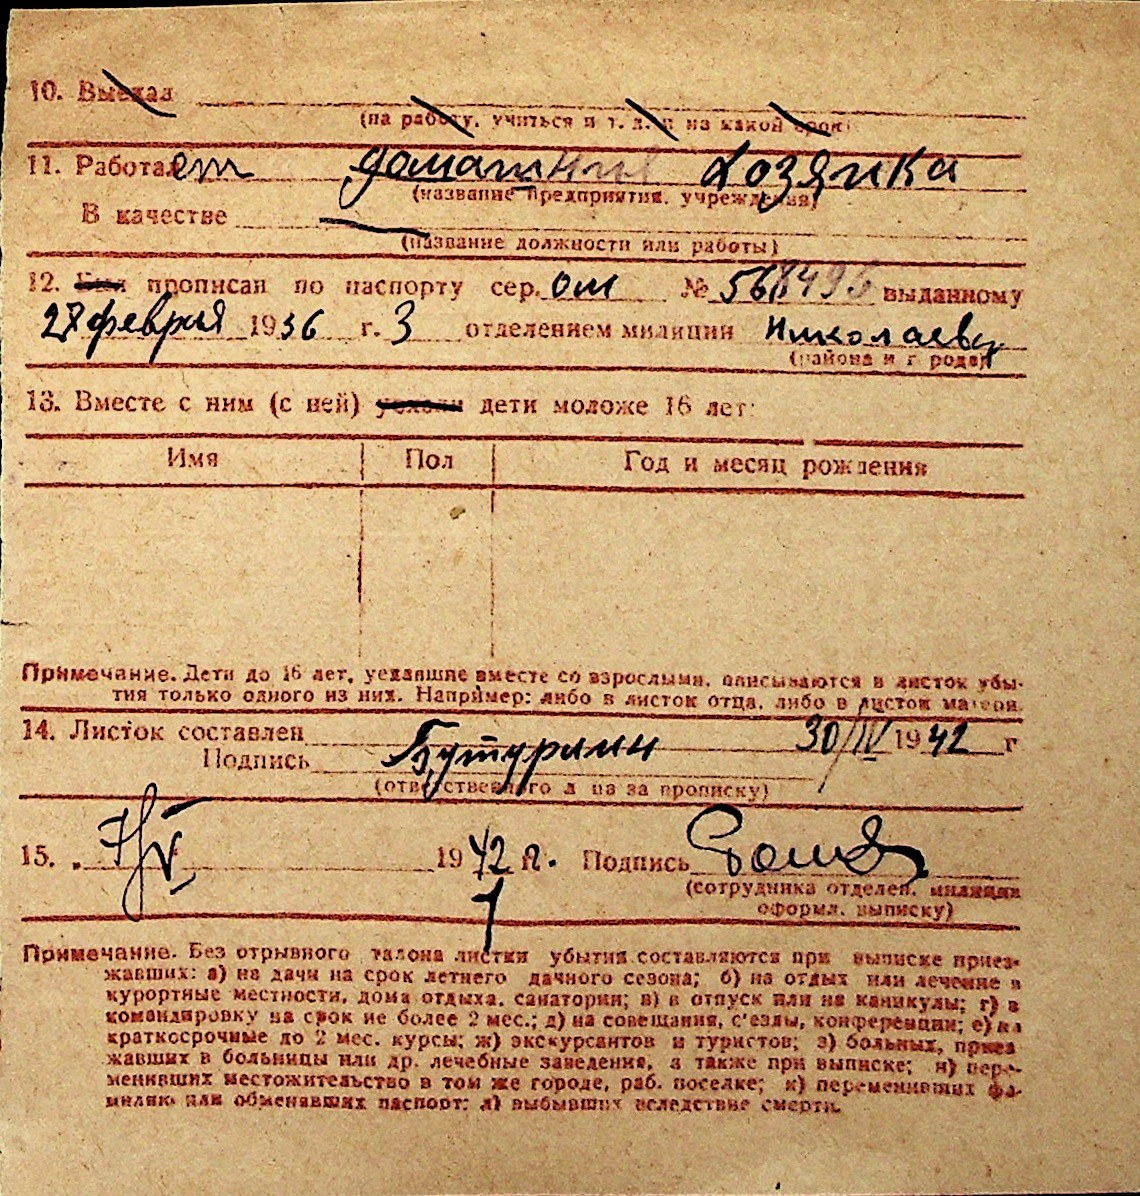 10. Выехал
(на работу, учиться и т. д. и на какой срок)
11. Работает домашний хозяйка
(название предприятия, учреждения)
В качестве —
(название должности или работы)
12. Был прописан по паспорту сер. ОМ № 568496 выданному
27 февраля 1936 г. 3 отделением милиции Николаевс
(района и города)
13. Вместе с ним (с ней) уехали дети моложе 16 лет:
Имя Пол Год и месяц рождения
Примечание. Дети до 16 лет, уехавшие вместе со взрослыми, вписываются в листок убы-
тия только одного из них. Например: либо в листок отца, либо в листок матери.
14. Листок составлен 30/IV 1942 г
Подпись
(ответственного л ца за прописку)
15. „ 7/V 1942 г. Подпись
(сотрудника отделен. милиции
оформл. выписку)
Примечание. Без отрывного талона листки убытия составляются при выписке приез-
жавших: а) на дачи на срок летнего дачного сезона; б) на отдых или лечение в
курортные местности, дома отдыха, санатории; в) в отпуск или на каникулы; г) в
командировку на срок не более 2 мес.; д) на совещания, с'езды, конференции; е) на
краткосрочные до 2 мес. курсы; ж) экскурсантов и туристов; з) больных, приез
жавших в больницы или др. лечебные заведения, а также при выписке; и) пере-
менивших местожительство в том же городе, раб. поселке; к) переменивших фа-
милию или обменявших паспорт; л) выбывших вследствие смерти.